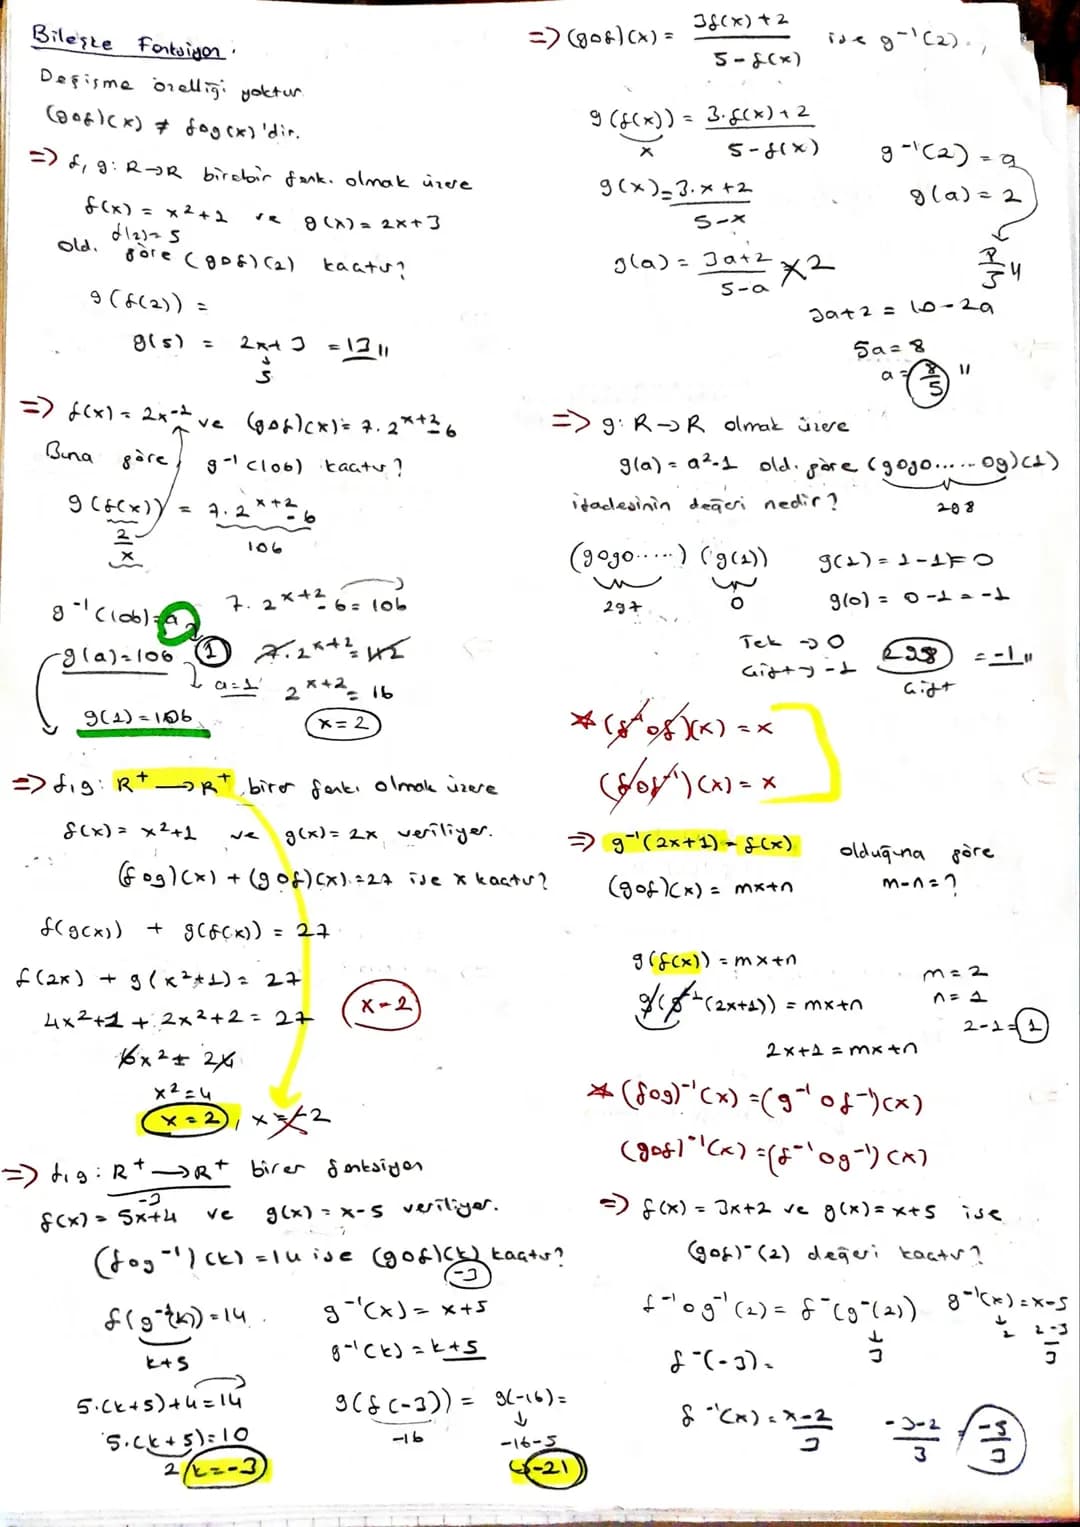 Bileşke Fonksiyon.
Değişme özelliği yoktur
(gof)(x) ≠ fog(x)'dir.
=> f, g: R→R birebir fonk. olmak üzere
f(x) = x²+1 ve g(x) = 2x+3
f(2)=5
old. göre (gof)(2) kaçtır?
g(f(2)) =
g(5) = 2x+3 = 13 //
5
=> f(x) = 2x-2 ve (gof)(x) = 7.2^(x+2)-6
Buna göre, g⁻¹(106) kaçtır?
g(f(x)) = 7.2^(x+2)-6
2
x
106
g⁻¹(106)=a
7.2^(x+2)-6 = 106
g(a)=106 1 7.2^(x+2) = 112
a=1 2^(x+2) = 16
g(1)=106 x=2
=> f,g: R⁺→R⁺, birer fonk. olmak üzere
f(x) = x²+1 ve g(x) = 2x veriliyor.
(fog)(x) + (gof)(x) = 27 ise x kaçtır?
f(g(x)) + g(f(x)) = 27
f(2x) + g(x²+1) = 27
4x²+1 + 2x²+2 = 27 x=2
6x² = 24
x²=4
x=2, x=-2
=> f,g: R⁺→R⁺ birer fonksiyon
-3
f(x) = 5x+4 ve g(x) = x-5 veriliyor.
(fog⁻¹)(k) = 14 ise (gof)(k) kaçtır?
-3
f(g⁻¹(k)) = 14 g⁻¹(x) = x+5
k+5 g⁻¹(k) = k+5
5.(k+5)+4=14 g(f(-3)) = g(-16) =
5.(k+5)=10 -16 -16-5
2 k=-3 -21
=> (gof)(x) = 3f(x)+2 / 5-f(x) ise g⁻¹(2).,
g(f(x)) = 3.f(x)+2 / 5-f(x)
x
g⁻¹(2) = a
g(x) = 3.x+2 / 5-x g(a) = 2
g(a) = 3a+2 / 5-a 2
3a+2 = 10-2a
5a=8
a=8/5 //
=> g: R→R olmak üzere
g(a) = a²-1 old. göre (gogo......og)(1)
298
ifadesinin değeri nedir?
(gogo.....) (g(1)) g(1) = 1-1 = 0
297 0 g(0) = 0-1 = -1
Tek → 0
Çift → -1 298 = -1 //
Çift
* (f⁻¹of)(x) = x
(fof⁻¹)(x) = x
=> g⁻¹(2x+1) = f(x) olduğuna göre
(gof)(x) = mx+n m-n=?
g(f(x)) = mx+n m=2
g(g⁻¹(2x+1)) = mx+n n=1
2-1=1
2x+1 = mx+n
* (fog)⁻¹(x) = (g⁻¹of⁻¹)(x)
(gof)⁻¹(x) = (f⁻¹og⁻¹)(x)
=> f(x) = 3x+2 ve g(x) = x+5 ise
(gof)⁻(2) değeri kaçtır?
f⁻¹og⁻¹(2) = f⁻(g⁻(2)) g⁻¹(x) = x-5
3 2 2-3
3
f⁻(-3) =
f⁻¹(x) = x-2 / 3 -3-2 / 3 = -5/3